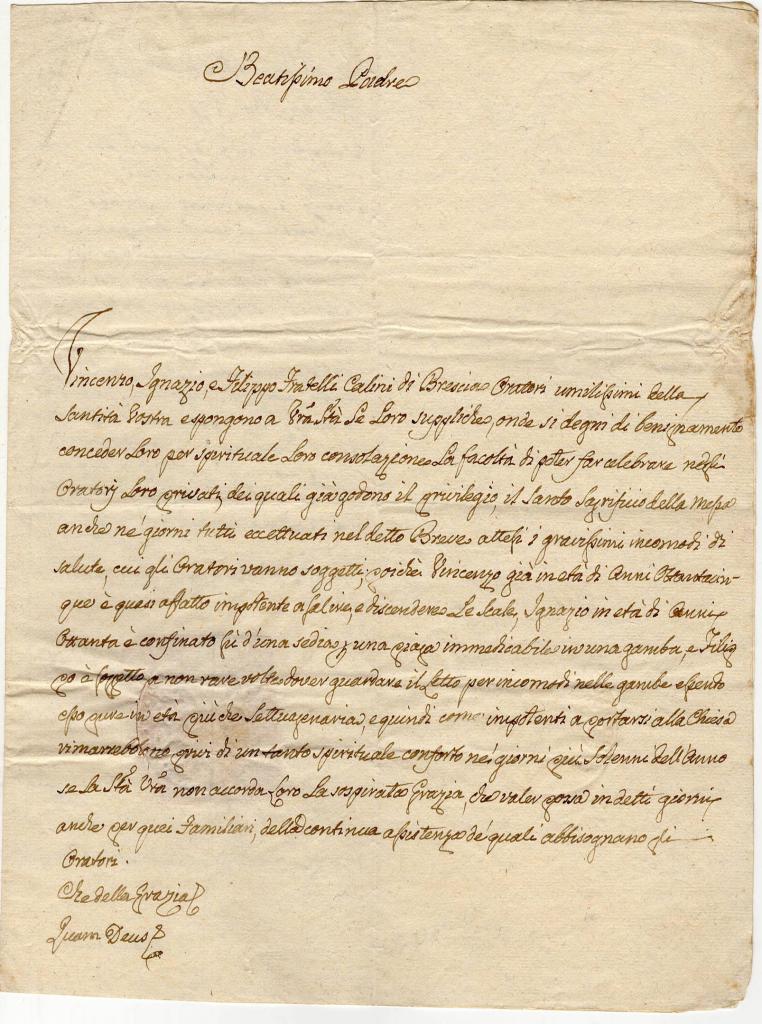 Beatissimo Padre
Vincenzo, Ignazio, e Filippo Fratelli Calini di Brescia Oratori umilissimi della
Santità Vostra espongono a Vrã Stà Le Loro suppliche, onde si degni di benignamente
conceder Loro per spirituale Loro consolazione La facoltà di poter far celebrare negli
Oratorj Loro privati, dei quali già godono il privilegio, il Santo Sagrificio della Messa
anche ne' giorni tutti eccettuati nel detto Breve attesi i gravissimi incomodi di
salute, cui gli Oratori vanno soggetti, poichè Vincenzo già in età di Anni Ottantacin-
que è quasi affatto impotente a salire, e discendere Le scale, Ignazio in età di Anni
Ottanta è confinato su d'una sedia per una piaga immedicabile in una gamba, e Filip
po è soggetto a non rare volte dover guardare il Letto per incomodi nelle gambe essendo
esso pure in età più che settuagenaria, e quindi come impotenti a portarsi alla Chiesa
rimarrebbero privi di un tanto spirituale conforto nei giorni più Solenni dell'Anno
se la Stà Vrã non accorda Loro La sospirata Grazia, che valer possa in detti giorni
anche per quei Familiari, della continua assistenza de' quali abbisognano gli
Oratori.
Che della Grazia
Quam Deus